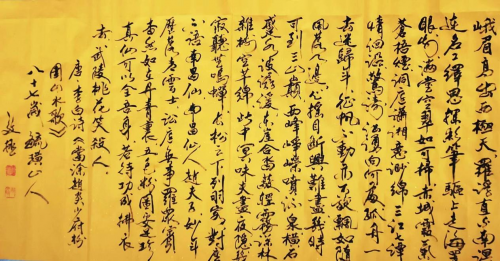 峨眉高出西極天羅浮直与南溟
連名工繹思揮彩筆驅山走海置
眼前满堂空翠如可掃赤城霞氣
蒼梧煙洞庭瀟湘意渺綿三江七澤
情洄沿驚濤汹涌向何處孤舟一
去迷歸年征帆不動亦不旋飄如隨
風落天邊心摇目斷興難盡幾時
可到三山巔西峰峥嵘噴流泉橫石
蹙水波潺湲东崖合沓蔽輕霧深林
雜樹空芊綿此中冥昧失晝夜隐几
寂聽無鳴蟬長松之下列羽客對座
不語南昌仙南昌仙人趙夫子妙年
歷落青雲士訟庭無事羅眾賓
杳然如在丹青里五色粉圖安足珍
真仙可以全吾身若待功成拂衣
去武陵桃花笑殺人
唐李白诗《當涂趙炎少府粉
圖山水歌》
八十七歲 毓璜山人